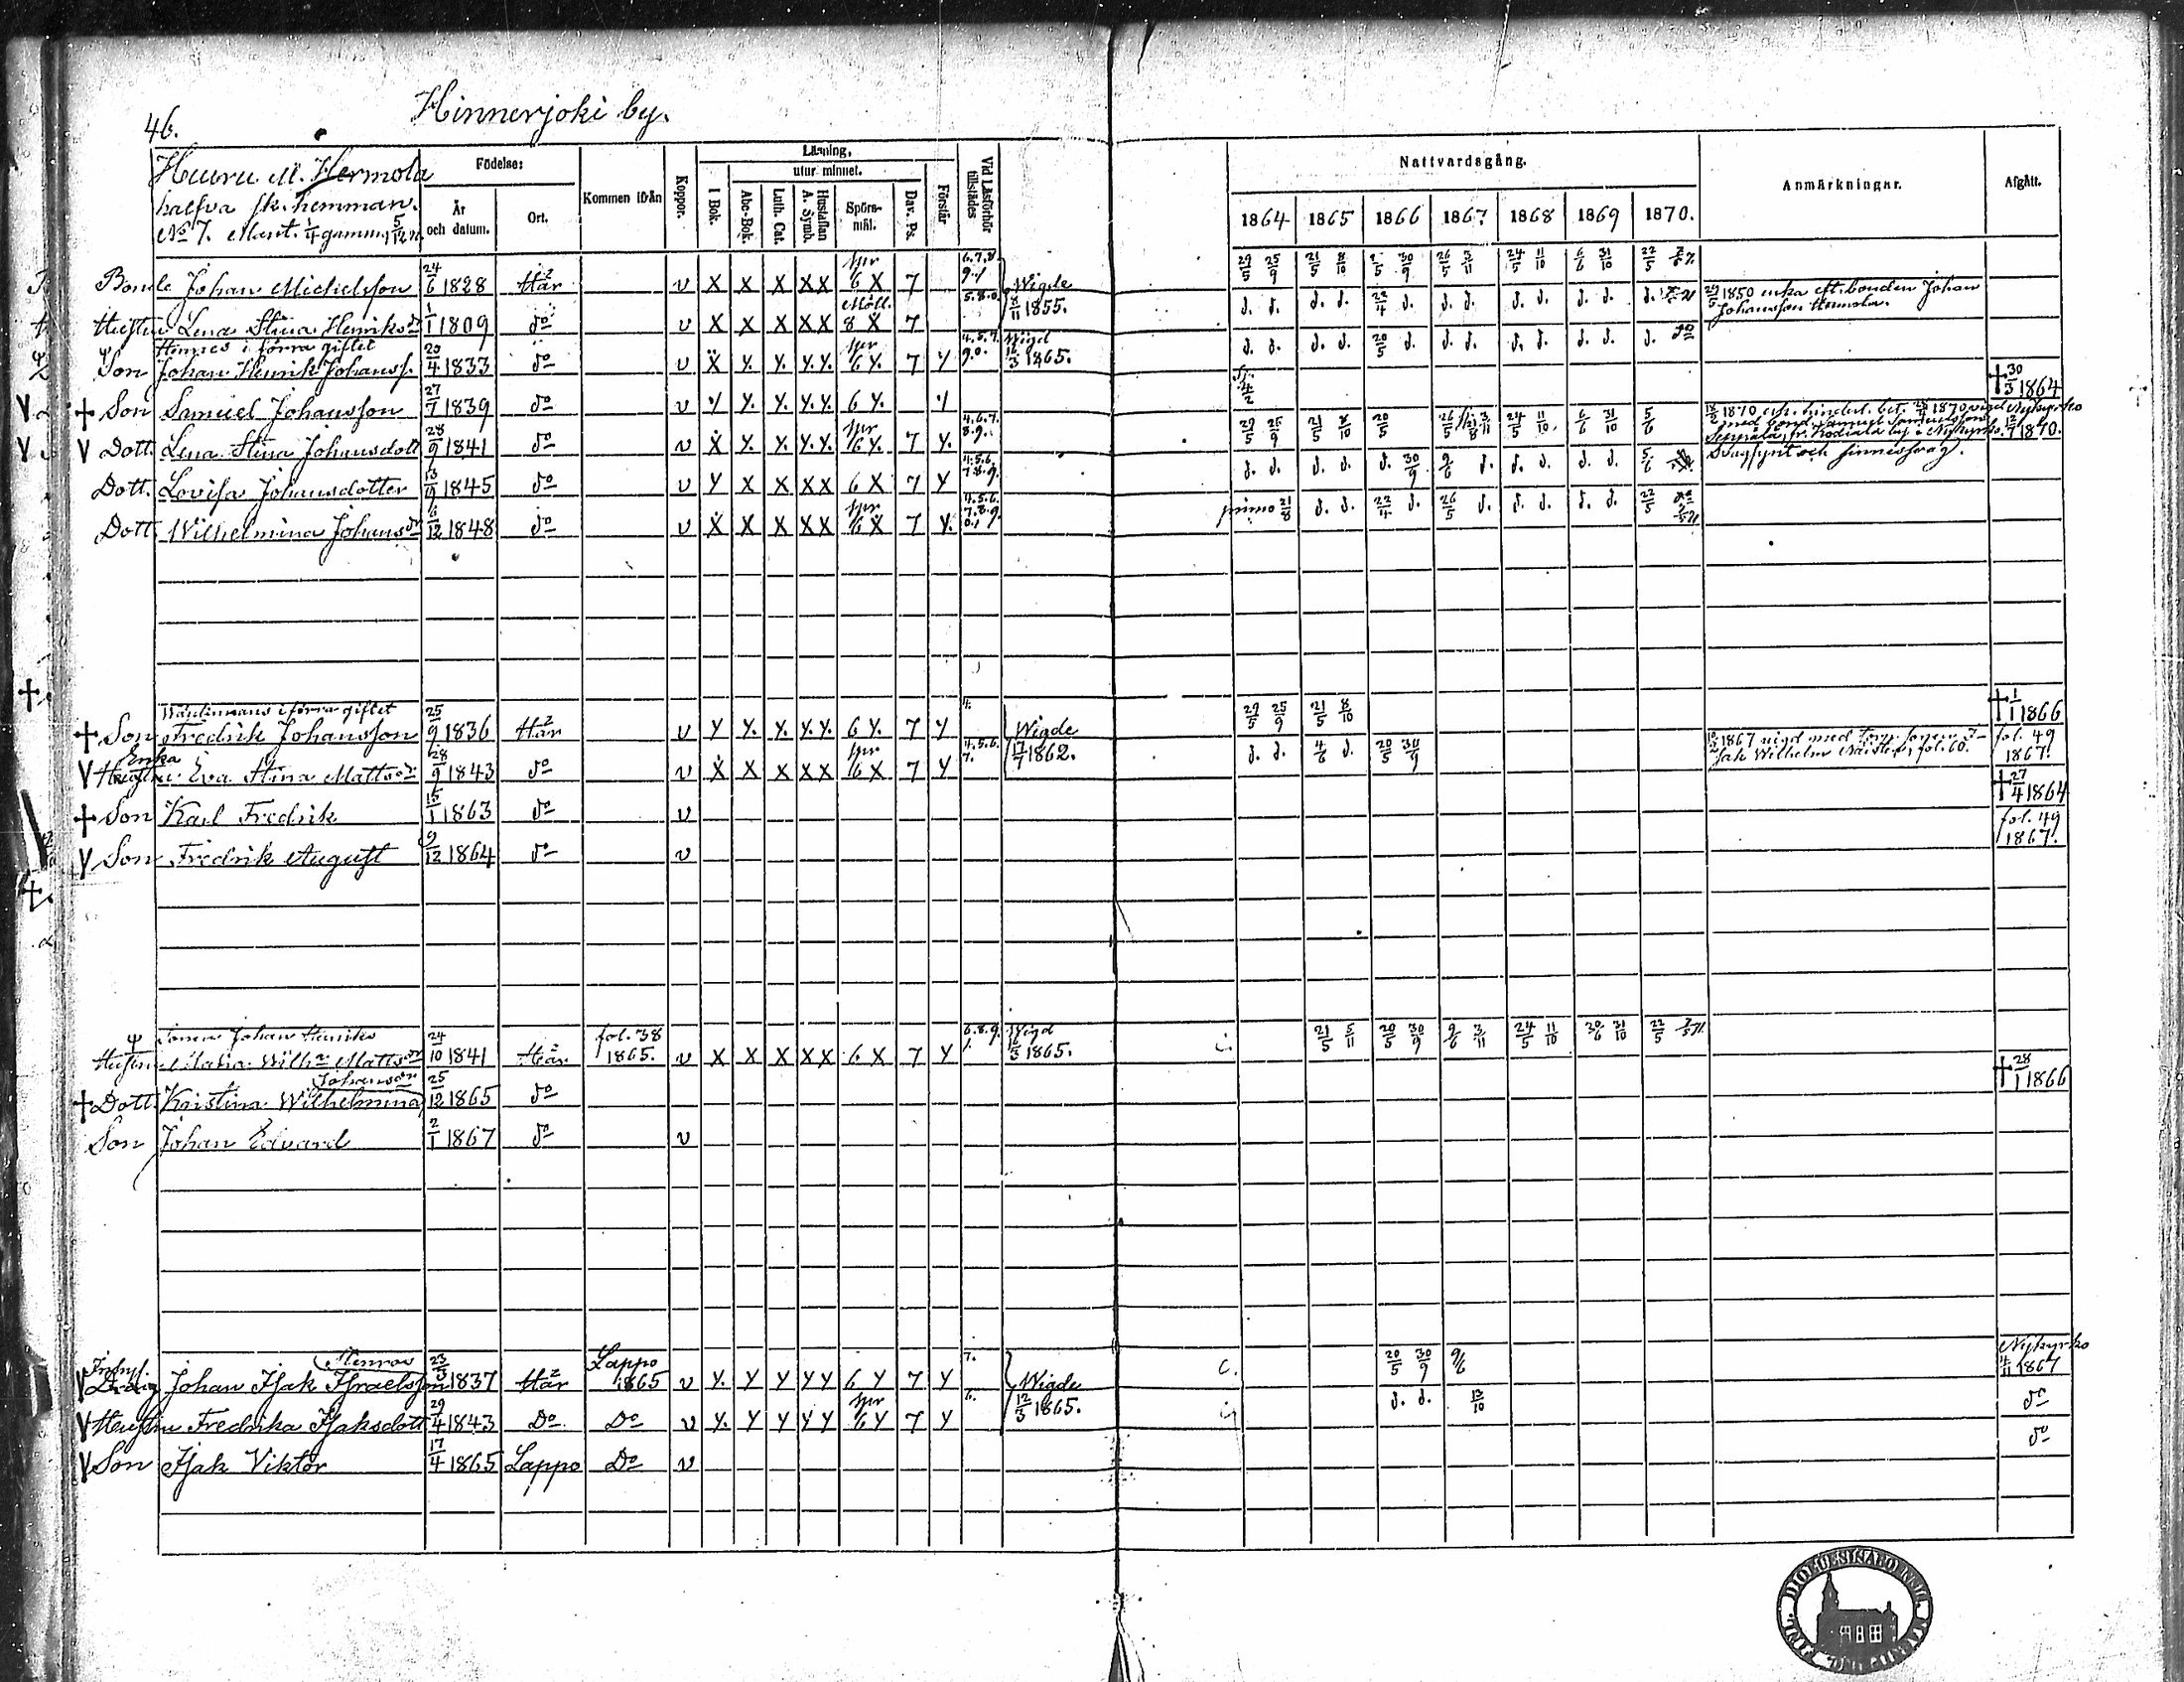 46.
Hinnerjoki by.
Huuru M. Hermola
halfva sk. hemman.
No 7. Mant. 1/4 gamm, 5/12 n.
Födelse:
År och datum.
Ort.
Kommen ifrån
Koppor.
Läsning,
utur minnet.
I Bok.
Abc-Bok.
Luth. Cat.
Hustaflan A. Symb.
Spörs-mål.
Dav. Ps.
Förstår
Vid Läsförhör tillstädes
Nattvardsgång.
1864 1865 1866 1867 1868 1869 1870.
Anmärkningar.
Afgått.
Bonde Johan Michelsson 24/6 1828 Här v X X X XX spr 6 X 7 6.7.8. 9.1 Wigde 29/5 25/9 21/5 8/10 30/9 26/5 3/11 24/5 11/10 6/6 31/10 22/5
Hustru Lena Stina Henriksdr 1/1 1809 do v X X X XX Möll. 8 X 7 5.8.0. 8/11 1855. d. d. d. d. 22/4 d. d. d. d. d. d. d. d. 29/5 1850 enka eft. bonden Johan
Johansson Hermola.
Hinnes i förra giftet
Son Johan Henrik Johanss. 20/4 1833 do v X Y. Y. Y.Y. spr 6 Y. 7 Y 4.5.7. 9.0. Wigd 16/3 1865. d. d. d. d. 20/5 d. d. d. d. d. d. d. d. do
+ Son Samuel Johansson 27/7 1839 do v Y Y. Y. Y.Y. 6 Y. Y 4/2 + 30/3 1864
V Dott. Lena Stina Johansdott 28/9 1841 do v X Y. Y. Y.Y. spr 6 Y. 7 Y. 4.6.7. 8.9. 29/5 25/9 21/5 8/10 20/5 26/5 3/11 24/5 11/10 6/6 31/10 5/6 1870 erh. hinderl. bet. 1870 vigd Nykyrko
med bond. Samuel Samuelsson
Seppälä, fr. Kodiala by i Nykyrko. 1870.
Svagsynt och sinnessvag.
Dott. Lovisa Johansdotter 13/9 1845 do v Y X X XX 6 X 7 Y 4.5.6. 7.8.9. d. d. d. d. d. 30/9 9/6 d. d. d. d. d. 5/6
Dott. Wilhelmina Johansdr 6/12 1848 do v X X X XX spr 6 X 7 Y. 4.5.6. 7.8.9. 0.1 primo 21/8 d. d. 22/4 d. 26/5 d. d. d. d. d. 22/5
Värdinnans i förra giftet
+ Son Fredrik Johansson 25/9 1836 Här v Y Y. Y. Y.Y. 6 Y. 7 Y 4. Wigde 29/5 25/9 21/5 8/10 + 1/1 1866
Enka
V Hustru Eva Stina Mattsdr 28/9 1843 do v X X X XX spr 6 X 7 Y 4.5.6. 7. 17/7 1862. d. d. 4/6 d. 20/5 30/9 10/2 1867 vigd med torp. sonen I-
sak Wilhelm Näistex, fol. 60. fol. 49 1867.
+ Son Karl Fredrik 15/1 1863 do v + 27/4 1864
V Son Fredrik August 9/12 1864 do v fol. 49 1867.
Sonen Johan Henriks
Hustru Maria Wilh. Mattsdr 24/10 1841 Här fol. 38 1865. v X X X XX 6 X 7 Y 6.8.9. 1. Wigd 16/3 1865. 21/5 5/11 20/5 30/9 9/6 3/11 24/5 11/10 30/6 31/10 22/5
Johansdr
+ Dott. Kristina Wilhelmina 25/12 1865 do + 28/1 1866
Son Johan Edvard 2/1 1867 do v
Inhys.
V Dräng Johan Isak Israelsson 23/3 1837 Här Lappo 1865 v Y. Y Y Y Y 6 Y 7 Y 7. Wigde c. 20/5 30/9 9/6 Nykyrko 4/11 1867
V Hustru Fredrika Isaksdott 29/4 1843 Do Do v Y. Y Y Y Y spr 6 Y 7 Y 6. 12/3 1865. d. d. 13/10 do
V Son Isak Viktor 17/4 1865 Lappo Do v do